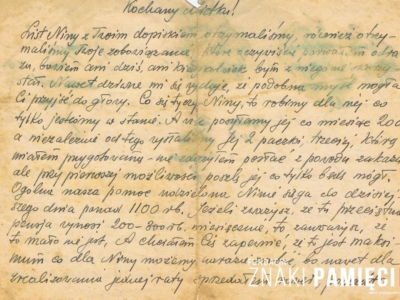 Kochany Mietku!
List Niny z Twoim dopiskiem otrzymaliśmy, również otrzy-
maliśmy Twoje zobowiązanie, które oczywiście
bowiem ani dziś, ani kiedykolwiek bym z niego nie skorzy-
stał. Nawet dziwne mi się wydaje, że podobna myśl mogła
Ci przyjść do głowy. Co się tyczy Niny, to robimy dla niej co
tylko jesteśmy w stanie. A więc posyłamy jej co miesiąc 200
a niezależnie od tego wysłaliśmy Jej 2 paczki, trzeciej, którą
miałem przygotowaną - nie zdążyłem posłać z powodu zakazu
ale przy pierwszej możliwości poszlę jej co tylko będę mógł.
Ogólna nasza pomoc udzielona Ninie sięga do dzisiej-
szego dnia ponad 1100 rb. Jeżeli zważysz, że tu przeciętna
pensja wynosi 200-300 rb. miesięcznie, to zauważysz, że
to mało nie jest. A chciałbym Cię zapewnić, że to jest maksi-
mum co dla Niny możemy uczynić, bo nawet dla
zrealizowania jednej raty
ZNAKI PAMIĘCI